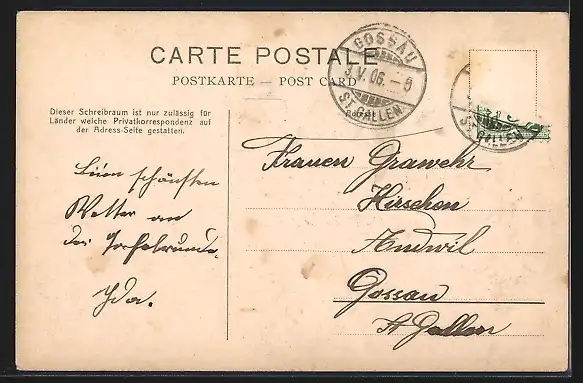 CARTE POSTALE
POSTKARTE — POST CARD
GOSSAU
3.V.06.—8
ST. GALLEN
Dieser Schreibraum ist nur zulässig für
Länder welche Privatkorrespondenz auf
der Adress-Seite gestatten.
schönsten
Wetter an
der
Ida.
ST. GALLEN
Frauen Grawehr
Hirschen
Andwil
Gossau
St Gallen